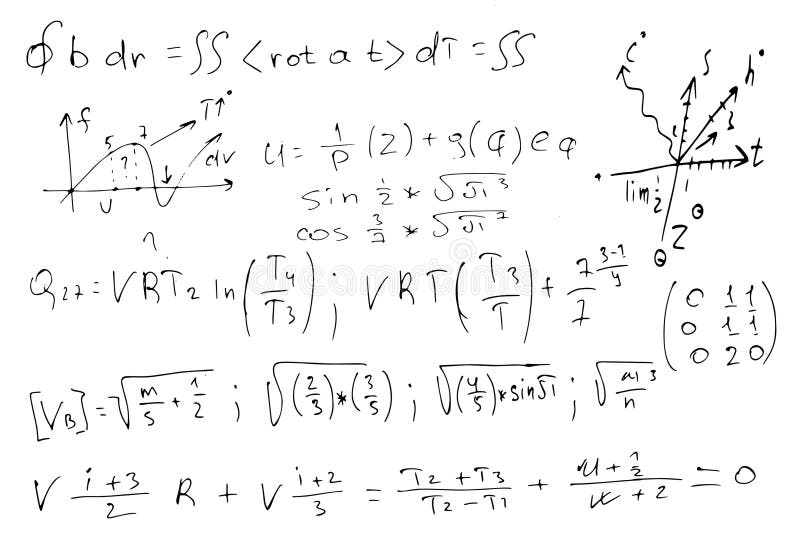 ∮ b dr = ∫∫ <rot a t> dT = ∫∫
f 5 7 ? T↑ dv ↓ U
U = 1/p (2) + g(q) e q
sin 1/2 * √√π³
cos 3/7 * √√π²
c s h 3 t
lim 1/2 1 Z
1
Q₂₇ = VRT₂ ln(T₄/T₃) ; VRT(T₃/T) + 7/7 3-1/y
(0 1 1
0 1 1
0 2 0)
[V_B] = √(m/5 + 1/2) ; √((2/3)*(3/5)) ; √((4/5)*sin√1) ; √(/n) ³
V i+3/2 R + V i+2/3 = T₂+T₃/T₂-T₁ + u+1/2/+2 = 0